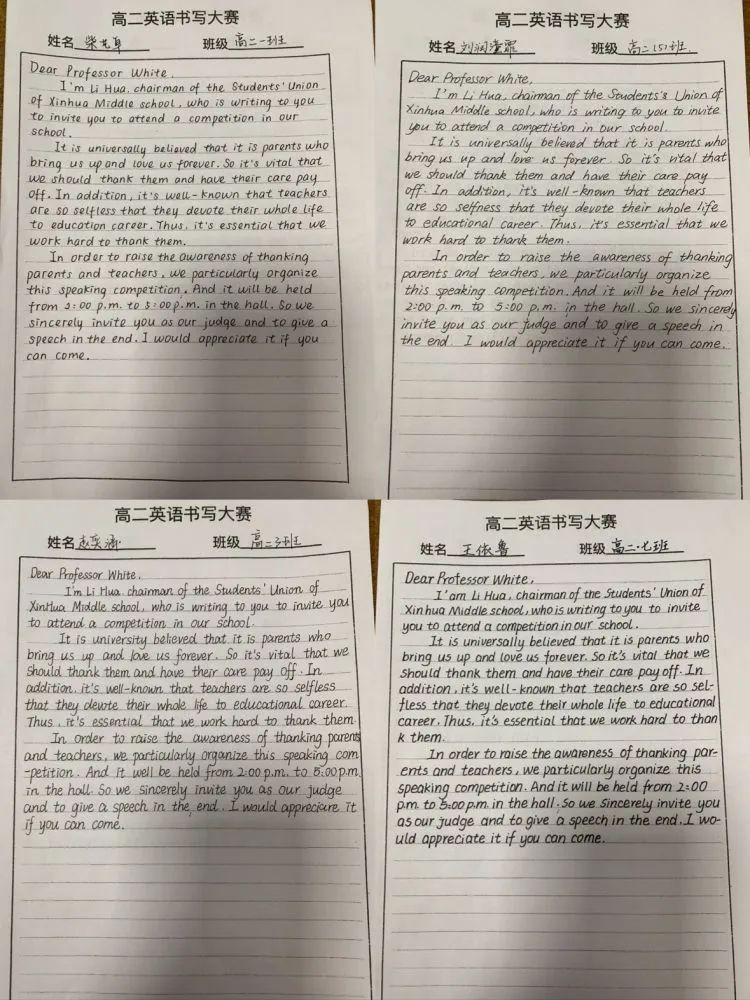 高二英语书写大赛
姓名 柴 班级 高二一班
Dear Professor White,
I'm Li Hua, chairman of the Students' Union
of Xinhua Middle school, who is writing to you
to invite you to attend a competition in our
school.
It is universally believed that it is parents who
bring us up and love us forever. So it's vital that
we should thank them and have their care pay
off. In addition, it's well-known that teachers
are so selfless that they devote their whole life
to education career. Thus, it's essential that we
work hard to thank them.
In order to raise the awareness of thanking
parents and teachers, we particularly organize
this speaking competition. And it will be held
from 2:00 p.m. to 5:00 p.m. in the hall. So we
sincerely invite you as our judge and to give a
speech in the end. I would appreciate it if you
can come.
高二英语书写大赛
姓名 刘润 班级 高二(5)班
Dear Professor White,
I'm Li Hua, chairman of the Students's Union of
Xinhua Middle school, who is writing to you to invite
you to attend a competition in our school.
It is universally believed that it is parents who
bring us up and love us forever. So it's vital that
we should thank them and have their care pay
off. In addition, it's well-known that teachers
are so selfness that they devote their whole life
to educational career. Thus, it's essential that we
work hard to thank them.
In order to raise the awareness of thanking
parents and teachers, we particularly organize
this speaking competition. And it will be held from
2:00 p.m. to 5:00 p.m. in the hall. So we sincerely
invite you as our judge and to give a speech in
the end. I would appreciate it if you can come.
高二英语书写大赛
姓名 赵奕 班级 高二3班
Dear Professor White,
I'm Li Hua, chairman of the Students' Union of
XinHua Middle school, who is writing to you to invite you
to attend a competition in our school.
It is university believed that it is parents who
bring us up and love us forever. So it's vital that we
should thank them and have their care pay off. In
addition, it's well-known that teachers are so selfless
that they devote their whole life to educational career.
Thus, it's essential that we work hard to thank them.
In order to raise the awareness of thanking parents
and teachers, we particularly organize this speaking com
-petition. And it well be held from 2:00 p.m. to 5:00 p.m.
in the hall. So we sincerely invite you as our judge
and to give a speech in the end. I would appreciare it
if you can come.
高二英语书写大赛
姓名 王依鲁 班级 高二·七班
Dear Professor White,
I'am Li Hua, chairman of the Students' Union of
Xinhua Middle school, who is writing to you to invite
you to attend a competition in our school.
It is universally believed that it is parents who
bring us up and love us forever. So it's vital that we
should thank them and have their care pay off. In
addition, it's well-known that teachers are so sel-
fless that they devote their whole life to educational
career. Thus, it's essential that we work hard to than
k them.
In order to raise the awareness of thanking par-
ents and teachers, we particularly organize this
speaking competition. And it will be held from 2:00
p.m. to 5:00 p.m. in the hall. So we sincerely invite you
as our judge and to give a speech in the end. I wo-
uld appreciate it if you can come.